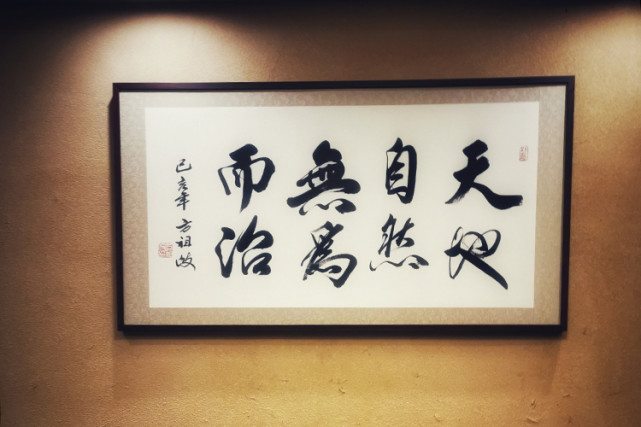 天地
自然
無為
而治
己亥年方祖岐